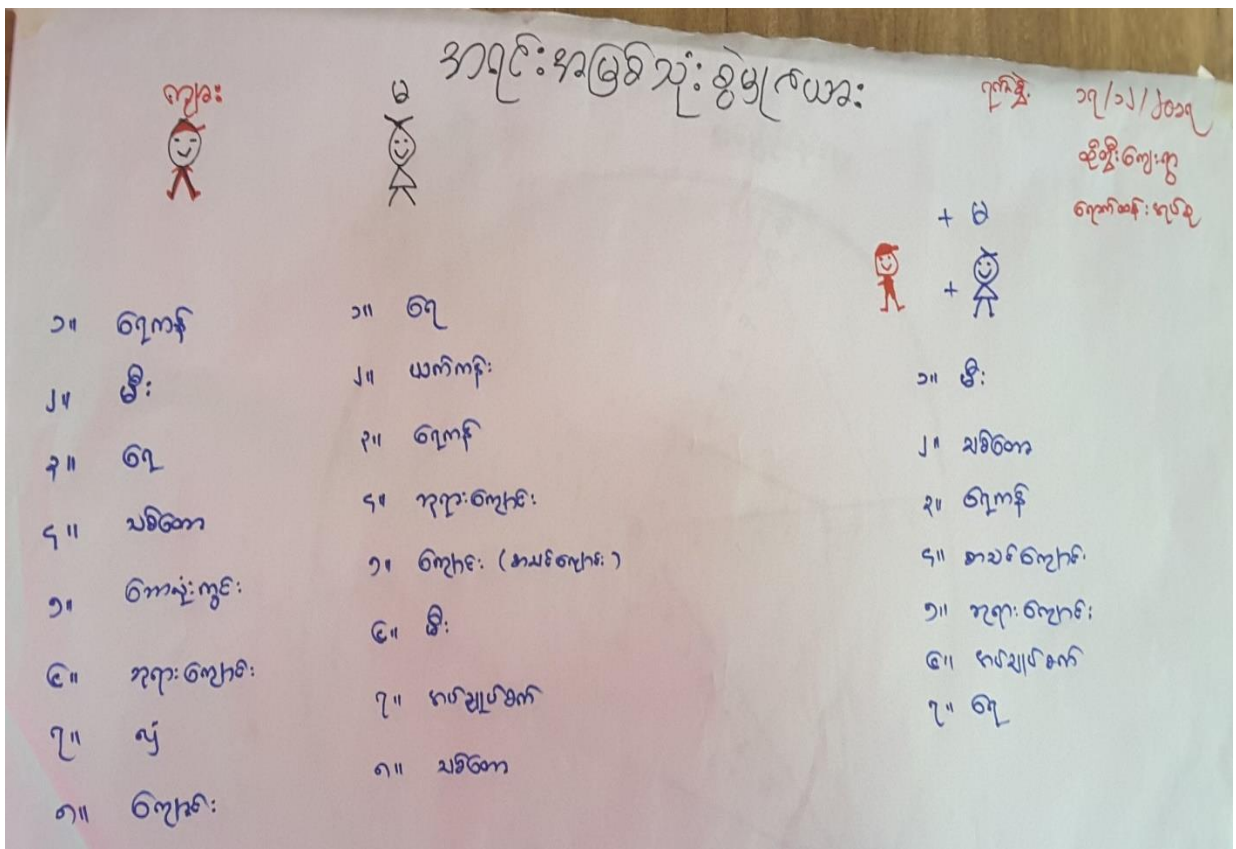 အရင်းအမြစ်သုံးစွဲမှုဇယား
ရက်စွဲ ၁၇/၁၂/၂၀၁၇
ကျေးရွာ
ကျား
၁။ ရေကန်
၂။ မီး
၃။ ရေ
၄။ သစ်တော
၅။ ဘောလုံးကွင်း
၆။ ဘုရားကျောင်း
၇။ လှုံ
၈။ ကျောင်း
မ
၁။ ရေ
၂။ ယက်ကန်း
၃။ ရေကန်
၄။ ဘုရားကျောင်း
၅။ ကျောင်း (စာသင်ကျောင်း)
၆။ မီး
၇။ အပ်ချုပ်စက်
၈။ သစ်တော
+ မ
+
၁။ မီး
၂။ သစ်တော
၃။ ရေကန်
၄။ စာသင်ကျောင်း
၅။ ဘုရားကျောင်း
၆။ အပ်ချုပ်စက်
၇။ ရေ